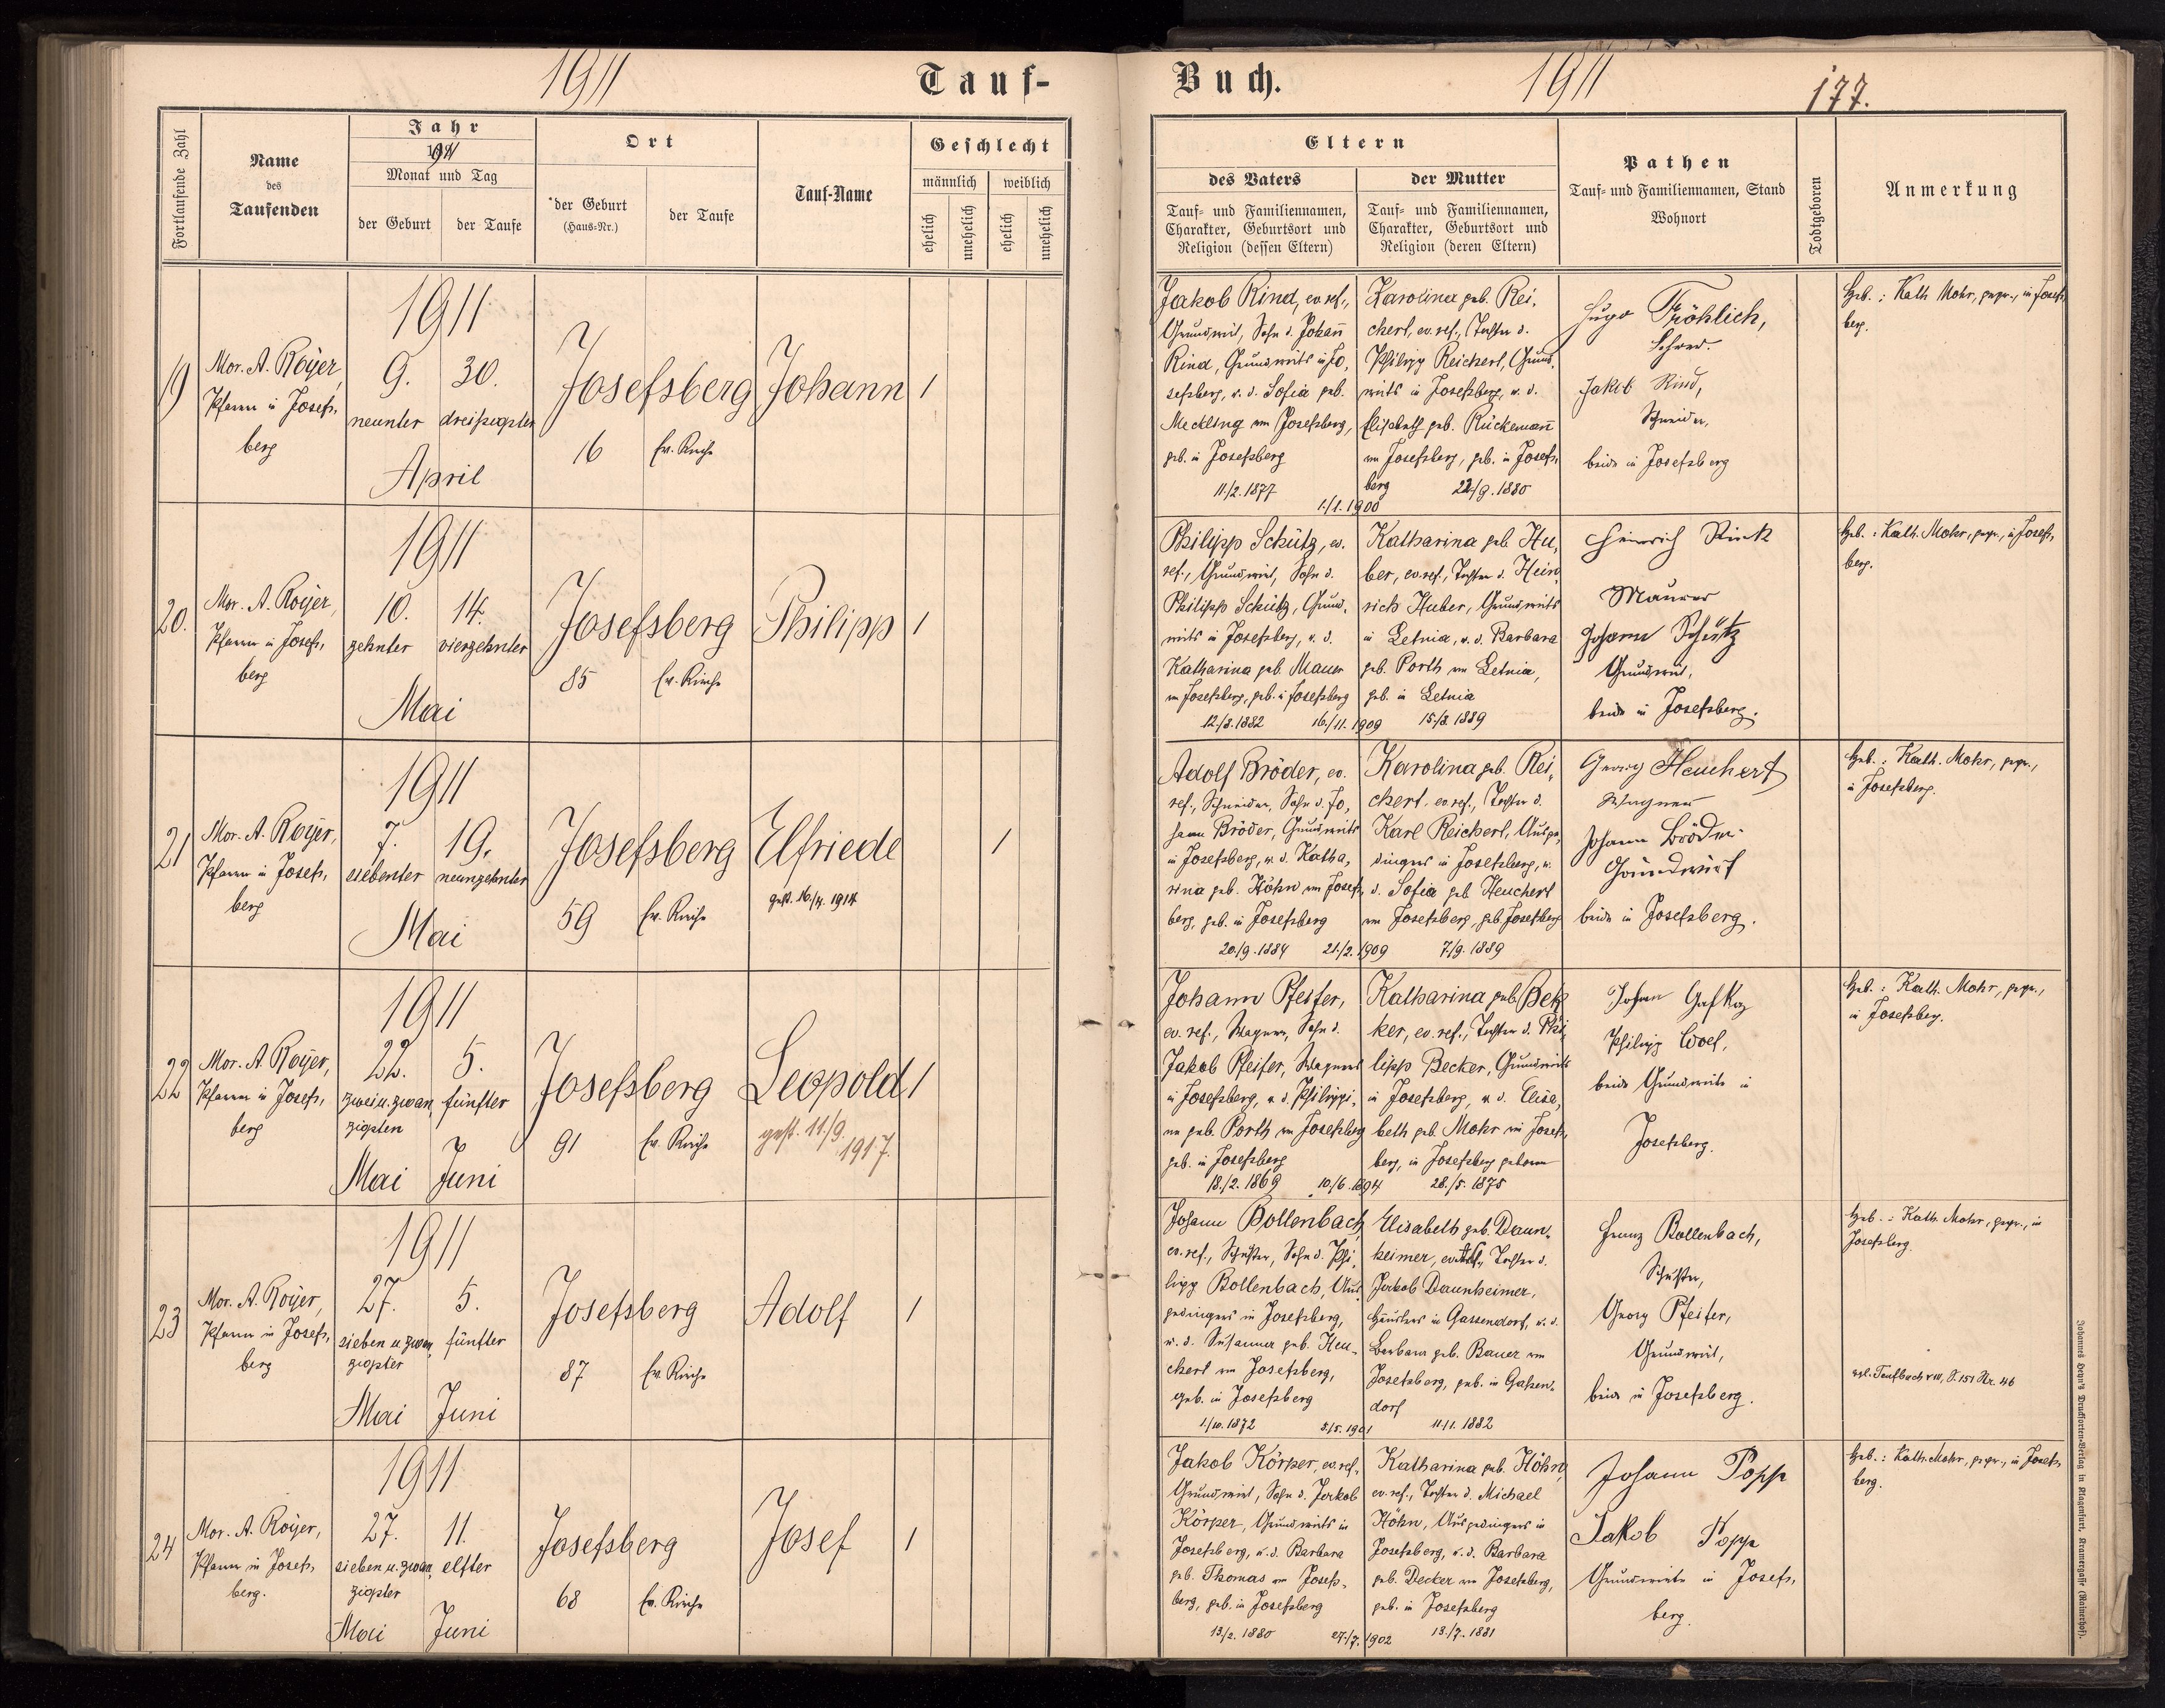 1911
Tauf-
Buch.
1911
177.
Fortlaufende Zahl
Name
des
Taufenden
Jahr
1911
Monat und Tag
der Geburt
der Taufe
Ort
der Geburt
(Haus-Nr.)
der Taufe
Tauf-Name
Geschlecht
männlich
weiblich
ehelich
unehelich
ehelich
unehelich
Eltern
des Vaters
Tauf- und Familiennamen,
Charakter, Geburtsort und
Religion (dessen Eltern)
der Mutter
Tauf- und Familiennamen,
Charakter, Geburtsort und
Religion (deren Eltern)
Pathen
Tauf- und Familiennamen, Stand
Wohnort
Todtgeboren
Anmerkung
19
Mor. A. Royer,
Pfarrer in Josefs-
berg
1911
9. 30.
neunter dreißigster
April
Josefsberg
16 Ev. Kirche
Johann
1
Jakob Rind, ev. ref.,
Grundwirt, Sohn d. Johann
Rind, Grundwirts in Jo-
sefsberg, u. d. Sofia geb.
Meckling von Josefsberg,
geb. in Josefsberg
11./2. 1877
1./1. 1900
Karolina geb. Rei-
chert, ev. ref., Tochter d.
Philipp Reichert, Grund-
wirts in Josefsberg, u. d.
Elisabeth geb. Rückemann
von Josefsberg, geb. in Josefs-
berg 22./9. 1880
Hugo Fröhlich,
Lehrer.
Jakob Rind,
Schneider,
beide in Josefsberg
Heb.: Kath. Mohr, gepr., in Josefs-
berg.
20.
Mor. A. Royer,
Pfarrer in Josefs-
berg
1911
10. 14.
zehnter vierzehnter
Mai
Josefsberg
85 Ev. Kirche
Philipp
1
Philipp Schütz, ev.
ref., Grundwirt, Sohn d.
Philipp Schütz, Grund-
wirts in Josefsberg, u. d.
Katharina geb. Mauer
von Josefsberg, geb. in Josefsberg
12./8. 1882 16./11. 1909
Katharina geb. Hu-
ber, ev. ref., Tochter d. Hein-
rich Huber, Grundwirts
in Letnia, u. d. Barbara
geb. Porth von Letnia,
geb. in Letnia
15./8. 1889
Heinrich Rink
Maurer
Johann Schütz
Grundwirt,
beide in Josefsberg.
Heb.: Kath. Mohr, gepr., in Josefs-
berg.
21
Mor. A. Royer,
Pfarrer in Josefs-
berg
1911
7. 19.
siebenter neunzehnter
Mai
Josefsberg
59 Ev. Kirche
Elfriede
gest. 16./4. 1914
1
Adolf Bröder, ev.
ref., Schneider, Sohn d. Jo-
hann Bröder, Grundwirts
in Josefsberg, u. d. Katha-
rina geb. Höhn von Josefs-
berg, geb. in Josefsberg
20./9. 1884 21./2. 1909
Karolina geb. Rei-
chert, ev. ref., Tochter d.
Karl Reichert, Ausge-
dingers in Josefsberg, u.
d. Sofia geb. Heuchert
von Josefsberg, geb. Josefsberg
7./9. 1889
Georg Heuchert
Wagner
Johann Bröder
Grundwirt
beide in Josefsberg.
Heb.: Kath. Mohr, gepr.,
in Josefsberg.
22
Mor. A. Royer,
Pfarrer in Josefs-
berg
1911
22. 5.
zwei u. zwan- fünfter
zigsten
Mai Juni
Josefsberg
91 Ev. Kirche
Leopold
gest. 11./9.
1917.
1
Johann Pfeifer,
ev. ref., Wagner, Sohn d.
Jakob Pfeifer, Wagners
in Josefsberg, u. d. Philippi-
na geb. Porth von Josefsberg
geb. in Josefsberg
18./2. 1869 10./6. 1894
Katharina geb. Bek-
ker, ev. ref., Tochter d. Phi-
lipp Becker, Grundwirts
in Josefsberg, u. d. Elisa-
beth geb. Mohr von Josefs-
berg, in Josefsberg geboren
28./5. 1875
Johann
Philipp
beide Grundwirte in
Josefsberg.
Heb.: Kath. Mohr, gepr.,
in Josefsberg.
23
Mor. A. Royer,
Pfarrer in Josefs-
berg
1911
27. 5.
sieben u. zwan- fünfter
zigster
Mai Juni
Josefsberg
87 Ev. Kirche
Adolf
1
Johann Bollenbach,
ev. ref., Schuster, Sohn d. Phi-
lipp Bollenbach, Aus-
gedingers in Josefsberg,
u. d. Susanna geb. Heu-
chert von Josefsberg,
geb. in Josefsberg
1./10. 1872 5./5. 1901
Elisabeth geb. Daun-
heimer, ev. Tochter d.
Jakob Daunheimer,
Häuslers in Gassendorf, u. d.
Barbara geb. Bauer von
Josefsberg, geb. in Gassen-
dorf
11./1. 1882
Franz Bollenbach,
Schuster,
Georg Pfeifer,
Grundwirt,
beide in Josefsberg.
Heb.: Kath. Mohr, gepr., in
Josefsberg.
vgl. Taufbuch VIII, S. 151 Nr. 46
24
Mor. A. Royer,
Pfarrer in Josefs-
berg.
1911
27. 11.
sieben u. zwan- elfter
zigster
Mai Juni
Josefsberg
68 Ev. Kirche
Josef
1
Jakob Körper, ev. ref.,
Grundwirt, Sohn d. Jakob
Körper, Grundwirts in
Josefsberg, u. d. Barbara
geb. Thomas von Josefs-
berg, geb. in Josefsberg
13./2. 1880 27./7. 1902
Katharina geb. Höhn,
ev. ref., Tochter d. Michael
Höhn, Ausgedingers in
Josefsberg, u. d. Barbara
geb. Decker von Josefsberg,
geb. in Josefsberg
13./7. 1881
Johann Popp
Jakob Popp
Grundwirte in Josefs-
berg.
Heb.: Kath. Mohr, gepr., in Josefs-
berg.
Johannes Heyn's Drucksorten-Verlag in Klagenfurt, Kramergasse (Rainerhof).